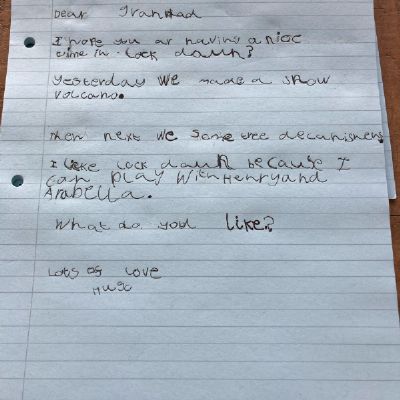 Dear Grandad
I hope you ar having a nice
time in lock down?
Yesterday we made a snow
volcano.
then next we some tree decarishens
I like lock down because I
can play with Henry and
Arabella.
What do you like?
Lots of love
Hugo